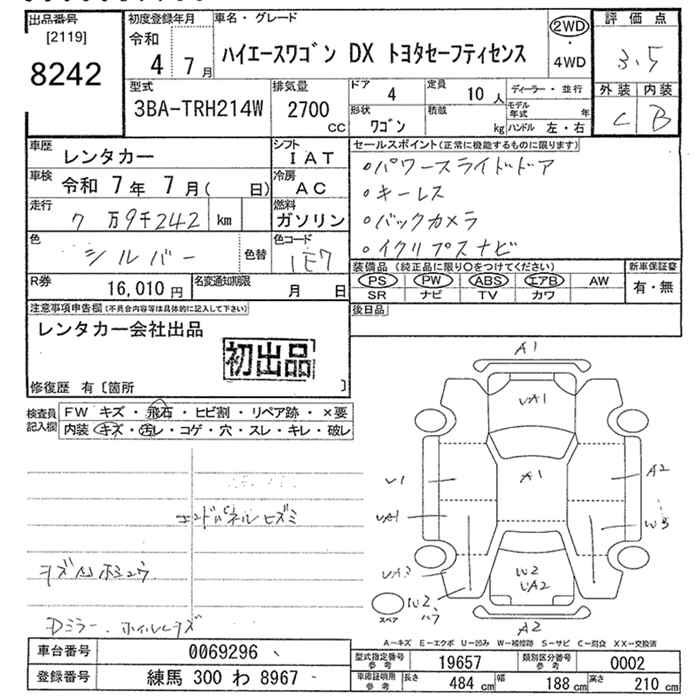 出品番号
[2119]
8242
初度登録年月
令和
4 7月
車名・グレード
ハイエースワゴン DX トヨタセーフティセンス
2WD
・
4WD
評価点
3.5
外装 内装
C B
型式
3BA-TRH214W
排気量
2700
cc
ドア 4
定員 10人
形状 ワゴン
積載 kg
ディーラー・並行
モデル年式 年
ハンドル 左・右
車歴 レンタカー
シフト IAT
車検 令和 7年 7月( 日)
冷房 AC
走行 7万9千242 km
燃料 ガソリン
色 シルバー 色替
色コード 1E7
R券 16,010円
名変通知期限 月 日
セールスポイント(正常に機能するものに限ります)
・パワースライドドア
・キーレス
・バックカメラ
・イクリプスナビ
装備品(純正品に限り○をつけてください)
PS PW ABS エアB AW
SR ナビ TV カワ
新車保証書
有・無
後日品
注意事項申告欄(不具合内容等は具体的に記入して下さい)
レンタカー会社出品
初出品
修復歴 有〔箇所 〕
検査員記入欄
FW キズ・飛石・ヒビ割・リペア跡・×要
内装 キズ・汚レ・コゲ・穴・スレ・キレ・破レ
エンドパネルヒズミ
Dミラー、ホイルキズ
A1
UA1
A1
A2
UA1
W3
UA3
W2
UA2
W2
スペア
A2
A-キズ E-エクボ U-凹み W-補修跡 S-サビ C-腐食 XX-交換済
車台番号 0069296
登録番号 練馬 300 わ 8967
型式指定番号 参考 19657
類別区分番号 参考 0002
車庫証明用 参考 長さ 484 cm 幅 188 cm 高さ 210 cm